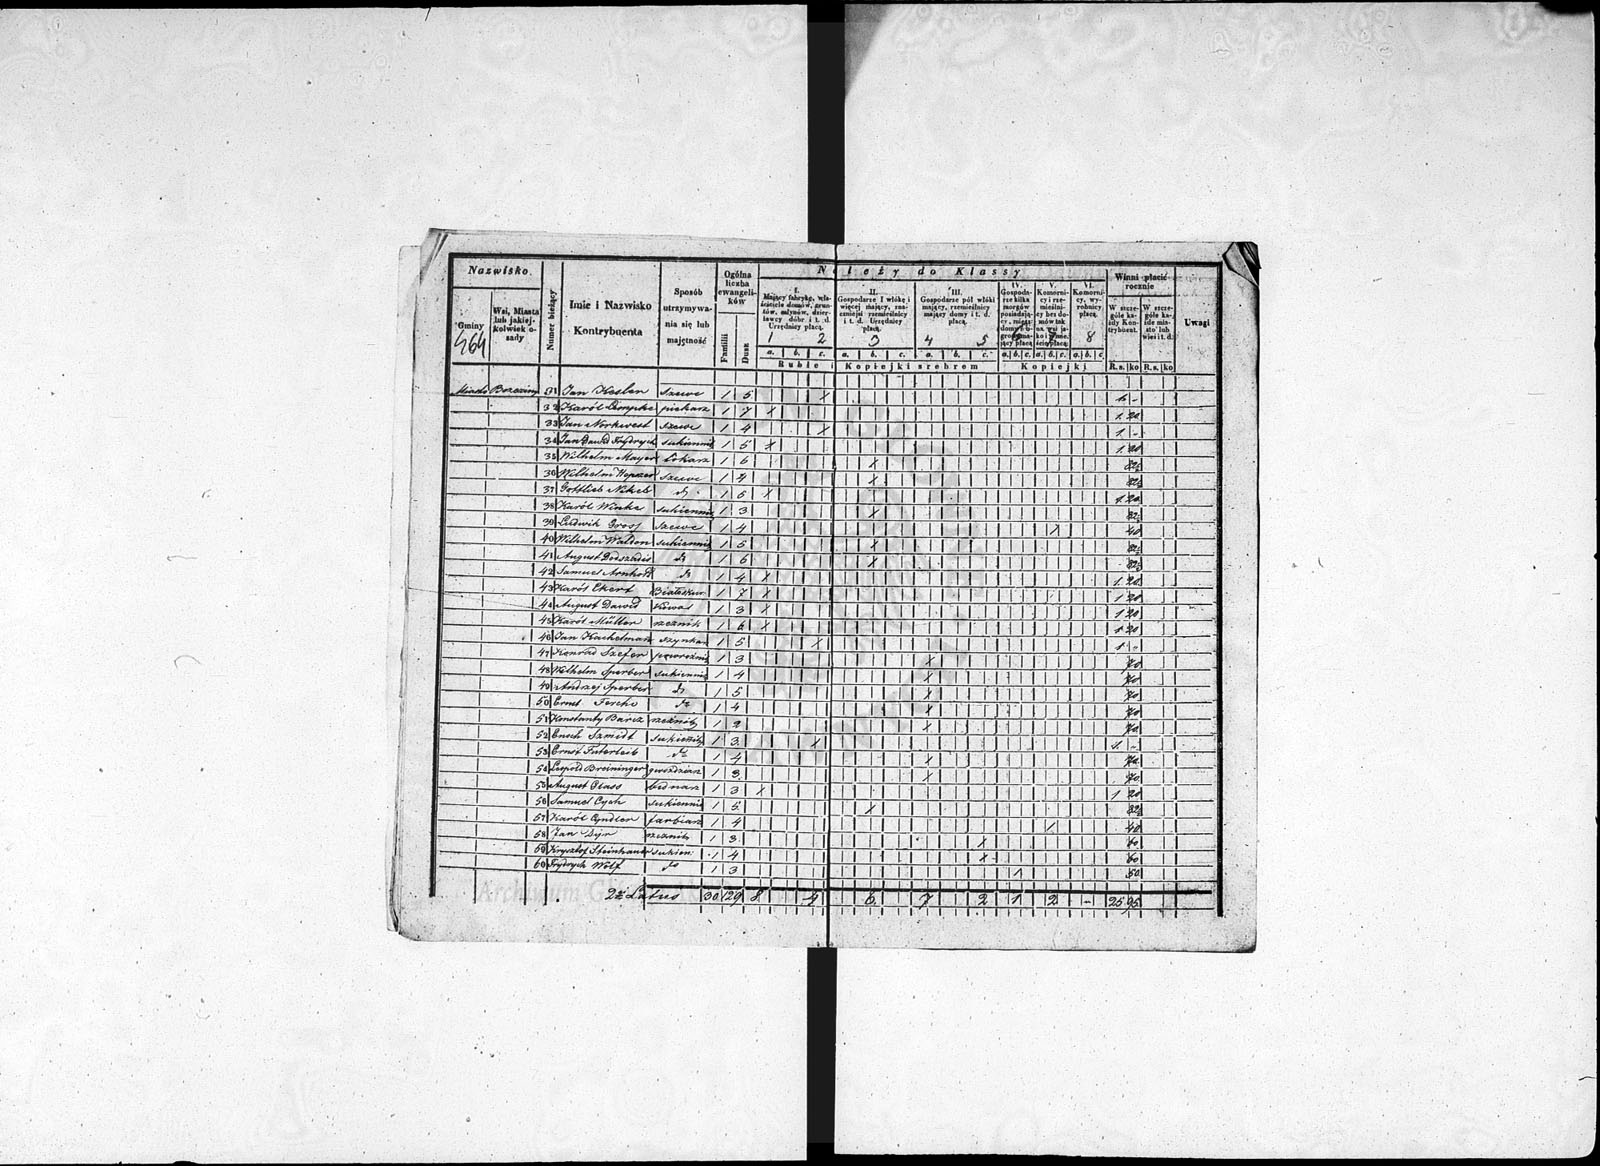 Nazwisko
Gminy
Wsi, Miasta lub jakiejkolwiek osady
Numer bieżący
Imie i Nazwisko Kontrybuenta
Sposób utrzymywania się lub majętność
Ogólna liczba ewangelików
Familii
Dusz
Należy do Klassy
I. Mający fabrykę, właściciele domów, gruntów, młynów, dzierżawcy dóbr i t. d. Urzędnicy płacą.
II. Gospodarze I włókę i więcej mający, znaczniejsi rzemieślnicy i t. d. Urzędnicy płacą.
III. Gospodarze pół włóki mający, rzemieślnicy mający domy i t. d. płacą.
IV.
V.
VI. Komornicy, wyrobnicy płacą.
Winni płacić rocznie
W szczególe każdy Kontrybuent.
Uwagi
464
1 2 3 4 5 6 8
a. b. c. a. b. c. a. b. c. a. b. c. a. b. c. a. b. c.
Ruble i Kopiejki srebrem
Kopiejki
R.s. ko R.s. ko
Miasto Brzeziny 31 Jan Kesler szewc 1 5 x 1 -
32 Karól piekarz 1 7 x 1 20
33 Jan szewc 1 4 x 1 -
34 Jan Dawid Frydrych sukiennik 1 5 x 1 20
35 Wilhelm Mayer tokarz 1 6 x 82½
36 Wilhelm szewc 1 4 x 82½
37 Gottlieb Nikel dº 1 5 x 1 20
38 Karól Winke sukiennik 1 3 x 82½
39 Ludwik Gross szewc 1 4 x 40
40 Wilhelm Waldon sukiennik 1 5 x 82½
41 August dº 1 6 x 82½
42 Samuel Arnhold dº 1 4 x 1 20
43 Karól Ekert 1 7 x 1 20
44 August Dawid Kowal 1 3 x 1 20
45 Karól Müller rzeznik 1 6 x 1 20
46 Jan Kachelman szynkarz 1 5 x 1 -
47 Konrad Szefer powroźnik 1 3 x 70
48 Wilhelm Sperber sukiennik 1 4 x 70
49 Andrzej Sperber dº 1 5 x 70
50 Ernst Ferche dº 1 4 x 70
51 Konstanty Barcz rzeznik 1 2 x 70
52 Enoch Szmidt sukiennik 1 3 x 1 -
53 Ernst Futerleib dº 1 4 x 70
54 Leopold Breininger gwoździarz 1 3 x 70
55 August Glass bednarz 1 3 x 1 20
56 Samuel Cych sukiennik 1 5 x 82½
57 Karól Cyndler farbiarz 1 4 40
58 Jan Dyr rzeznik 1 3 x 60
59 Krysztof sukien: 1 4 x 60
60 Frydrych Wolf do 1 3 50
2º Latus 30 129 8 4 6 7 2 1 2 - 25 95